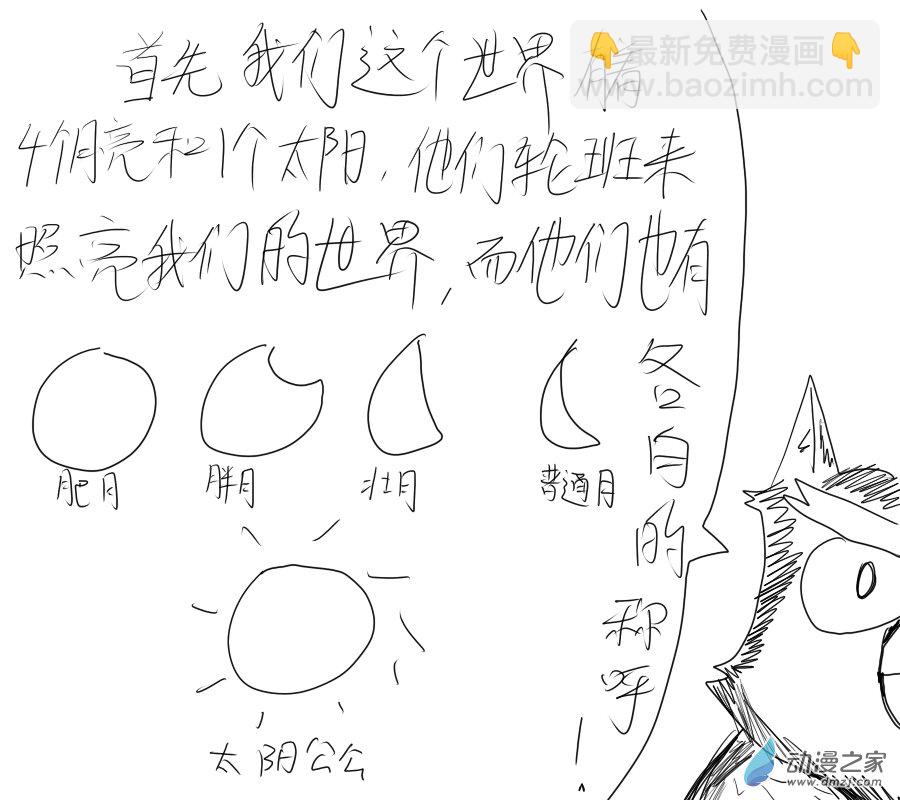 👇最新免费漫画👇
www.baozimh.com
首先我们这个世界有
4个月亮和1个太阳，他们轮班来
照亮我们的世界，而他们也有
各自的称呼！
肥月 胖月 壮月 普通月
太阳公公
动漫之家
www.dmzj.com